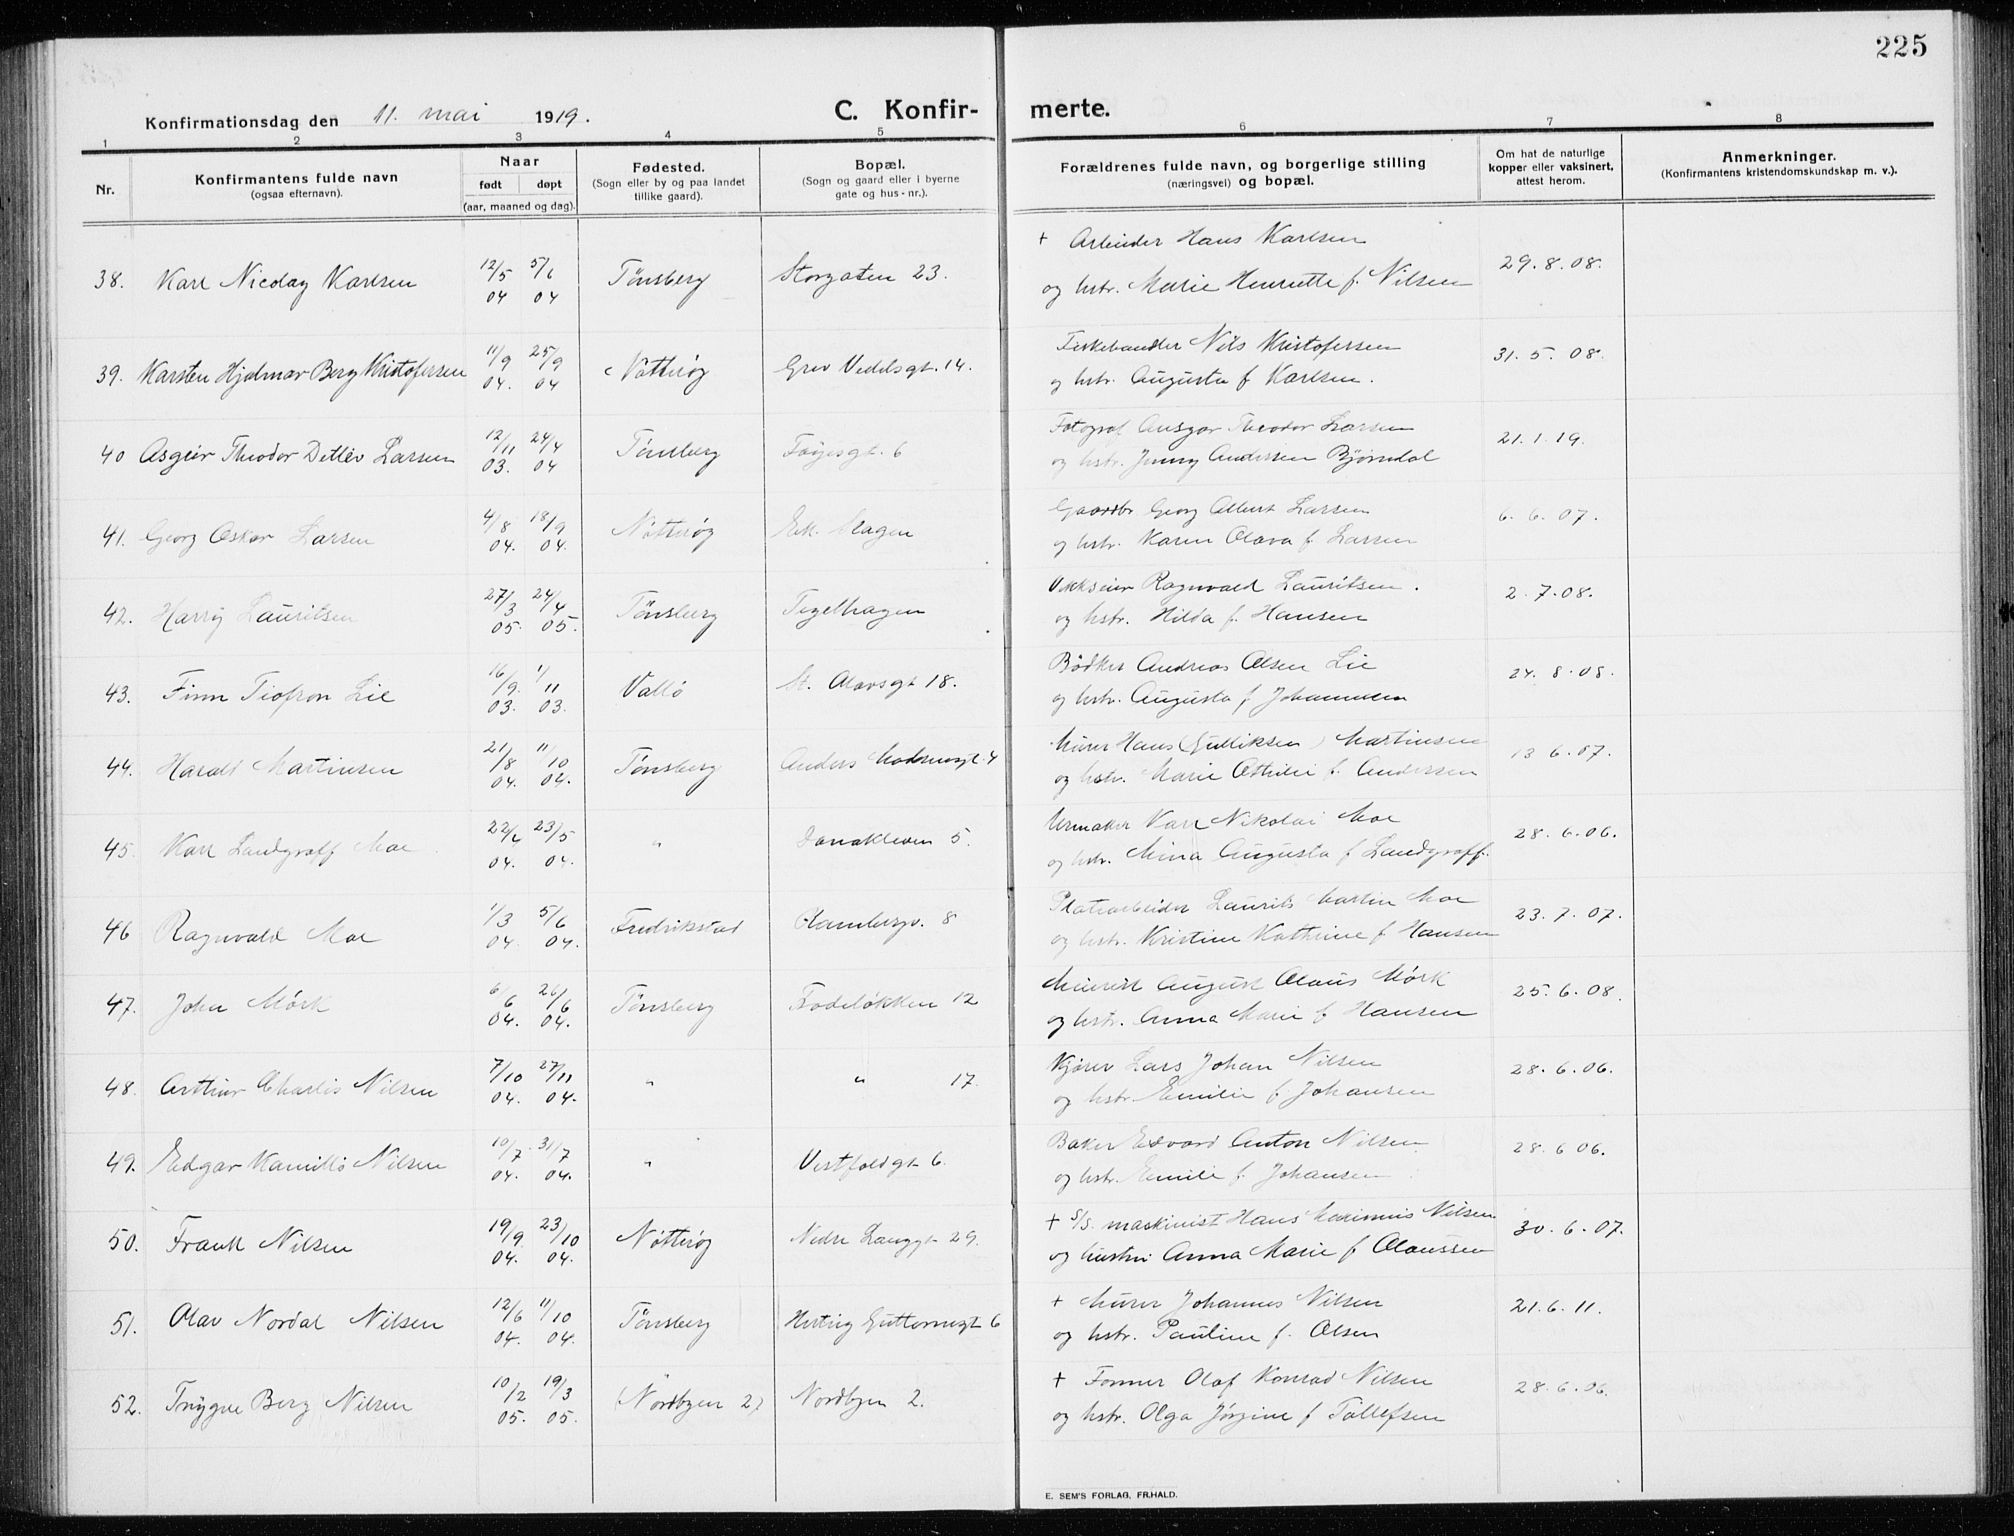 225
Konfirmationsdag den 11. mai 1919. C. Konfir- merte.
1 2 3 4 5 6 7 8
Nr. Konfirmantens fulde navn (ogsaa efternavn). Naar født døpt (aar, maaned og dag). Fødested. (Sogn eller by og paa landet tillike gaard). Bopæl. (Sogn og gaard eller i byerne gate og hus-nr.). Forældrenes fulde navn, og borgerlige stilling (næringsvei) og bopæl. Om hat de naturlige kopper eller vaksinert, attest herom. Anmerkninger. (Konfirmantens kristendomskundskap m. v.).
38. Karl Nicolay Karlsen 12/5 04 5/6 04 Tönsberg Storgaten 23. + Arbeider Hans Karlsen 29.8.08.
og hstr. Marie Henriette f. Nilsen
39. Karsten Hjalmar Berg Kristofersen 11/9 04. 25/9 04 Nötterøy Grev Vedelsgt. 14. Fiskehandler Nils Kristofersen 31.5.08.
og hstr. Augusta f Karlsen.
40 Asgeir Theodor Detlev Larsen 12/11 03. 24/4 04 Tönsberg Føyesgt. 6 Fotograf Ansgar Theodor Larsen 21.1.19.
og hstr. Jenny Andersen Bjørndal
41. Georg Oskar Larsen 4/8 04. 18/9 04. Nötterøy Ek. Gaardbr Georg Albert Larsen 6.6.07.
og hstr. Karen Olava f. Larsen
42. Harry Lauritsen 27/3 05. 24/4 05. Tönsberg Teglhagen Ragnvald Lauritsen. 2.7.08.
og hstr. Hilda f. Hansen
43. Finn Tiofron Lie 16/9 03. 1/11 03. Vallö St. Olavsgt 18. Bödker Andreas Olsen Lie 24.8.08.
og hstr. Augusta f Johannesen
44. Harald Martinsen 21/8 04. 11/10 04. Tönsberg Anders Madsensgt. 4 Murer Hans (Gulliksen) Martinsen 13 6.07.
og hstr. Marie Othilie f. Andersen
45. Karl Landgraff Moe 22/2 04. 23/5 04. " Danakleven 5. Urmaker Karl Nikolai Moe 28.6.06.
og hstr. Mina Augusta f Landgraff.
46 Ragnvald Moe 1/3 04. 5/6 04. Fredrikstad Kambergv. 8 Platearbeider Laurits Martin Moe 23.7.07.
og hstr. Kristine Kathrine f Hansen
47. John Mörk 6/6 04. 26/6 04. Tönsberg Frodeløkken 12 August Olaus Mörk 25.6.08.
og hstr. Anna Marie f Hansen
48. Arthur Charles Nilsen 7/10 04. 27/11 04. " " 17. Kjører Lars Johan Nilsen 28.6.06.
og hstr. Emilie f. Johansen
49. Edgar Kamillo Nilsen 10/7 04. 31/7 04. " Vestfoldgt 6. Baker Edvard Anton Nilsen 28.6 06.
og hstr. Emilie f. Johansen
50. Frank Nilsen 19/9 04. 23/10 04. Nötterøy Nedre Langgt 29. + S/S. maskinist Hans Maximus Nilsen 30.6.07.
og hustru Anna Marie f Olaussen
51. Olav Nordal Nilsen 12/6 04. 11/10 04. Tönsberg Hertug Guttormsgt 6 + Murer Johannes Nilsen 21.6.11.
og hstr. Pauline f. Olsen
52. Trygve Berg Nilsen 10/2 05. 19/3 05. (Nordbyen 2) Nordbyen 2. + Former Olaf Konrad Nilsen 28.6.06.
og hstr. Olga Jörgine f Tollefsen
E. SEM'S FORLAG, FR.HALD.